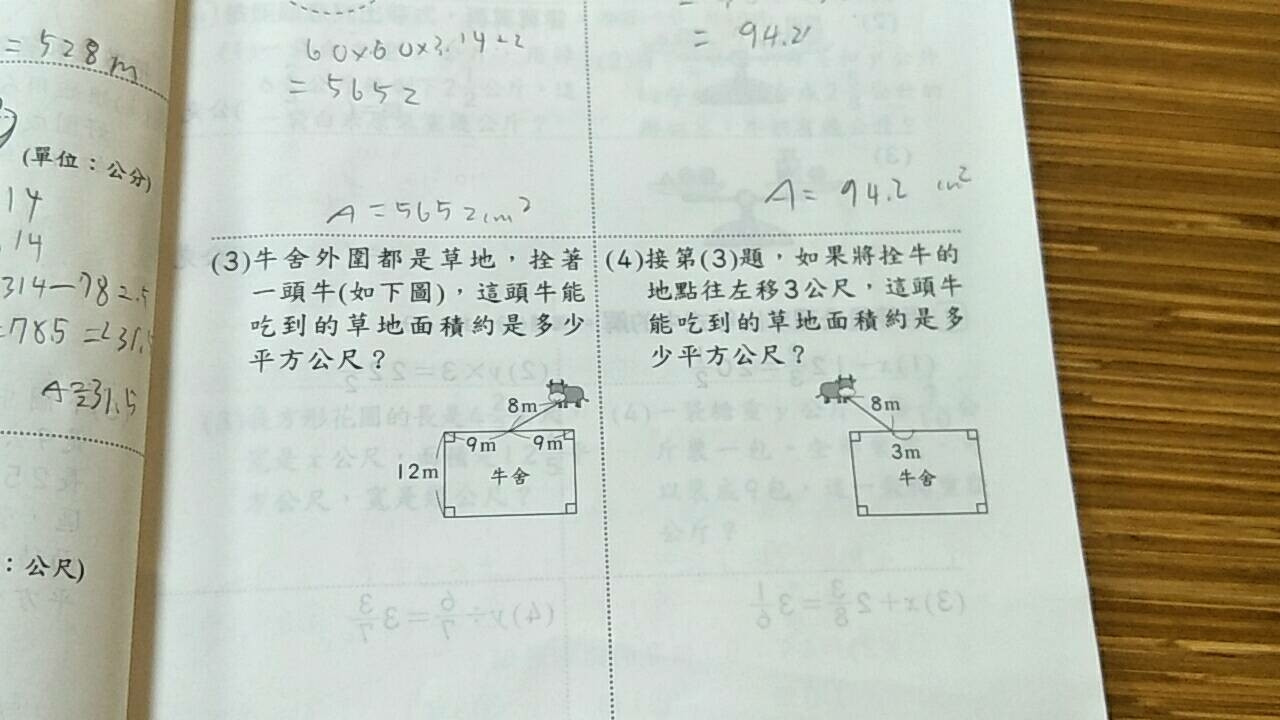 = 528 m
(單位：公分)
14
.14
314-78.5
=785
A=
: 公尺)
60×60×3.14÷2
= 5652
A = 5652cm²
= 94.2
A = 94.2 cm²
(3)牛舍外圍都是草地，拴著
一頭牛(如下圖)，這頭牛能
吃到的草地面積約是多少
平方公尺？
8m
9m 9m
12m
牛舍
(4)接第(3)題，如果將拴牛的
地點往左移3公尺，這頭牛
能吃到的草地面積約是多
少平方公尺？
8m
3m
牛舍